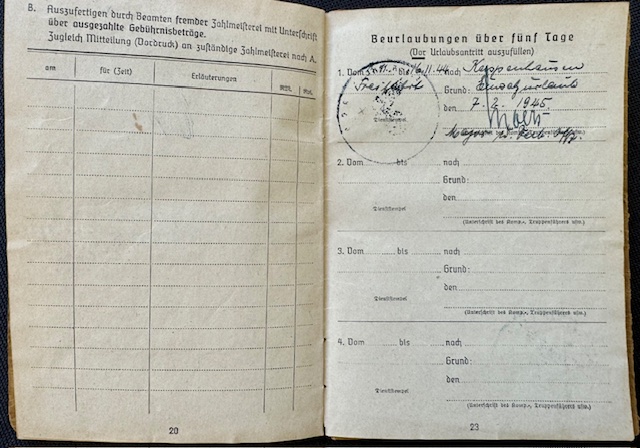 B. Auszufertigen durch Beamten fremder Zahlmeisterei mit Unterschrift
über ausgezahlte Gebührnisbeträge.
Zugleich Mitteilung (Vordruck) an zuständige Zahlmeisterei nach A.
am für (Zeit) Erläuterungen
20
Beurlaubungen über fünf Tage
(Vor Urlaubsantritt auszufüllen)
1. Vom bis 16.11.44 nach
Grund:
den 7. 2. 1945
Dienststempel
2. Vom bis nach
Grund:
den
Dienststempel
(Unterschrift des Komp.-, Truppenführers usw.)
3. Vom bis nach
Grund:
den
Dienststempel
(Unterschrift des Komp.-, Truppenführers usw.)
4. Vom bis nach
Grund:
den
Dienststempel
(Unterschrift des Komp.-, Truppenführers usw.)
23